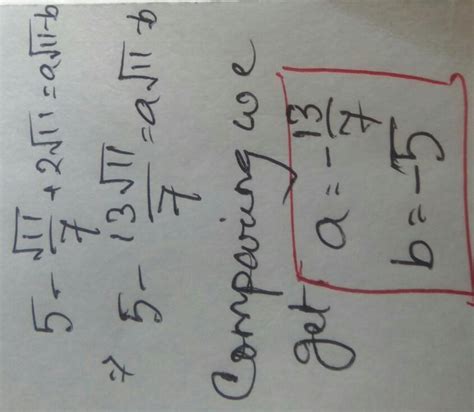 5 - √11/7 + 2√11 = a√11 - b
⇒ 5 - 13√11/7 = a√11 - b
Comparing we
get a = -13/7
b = -5